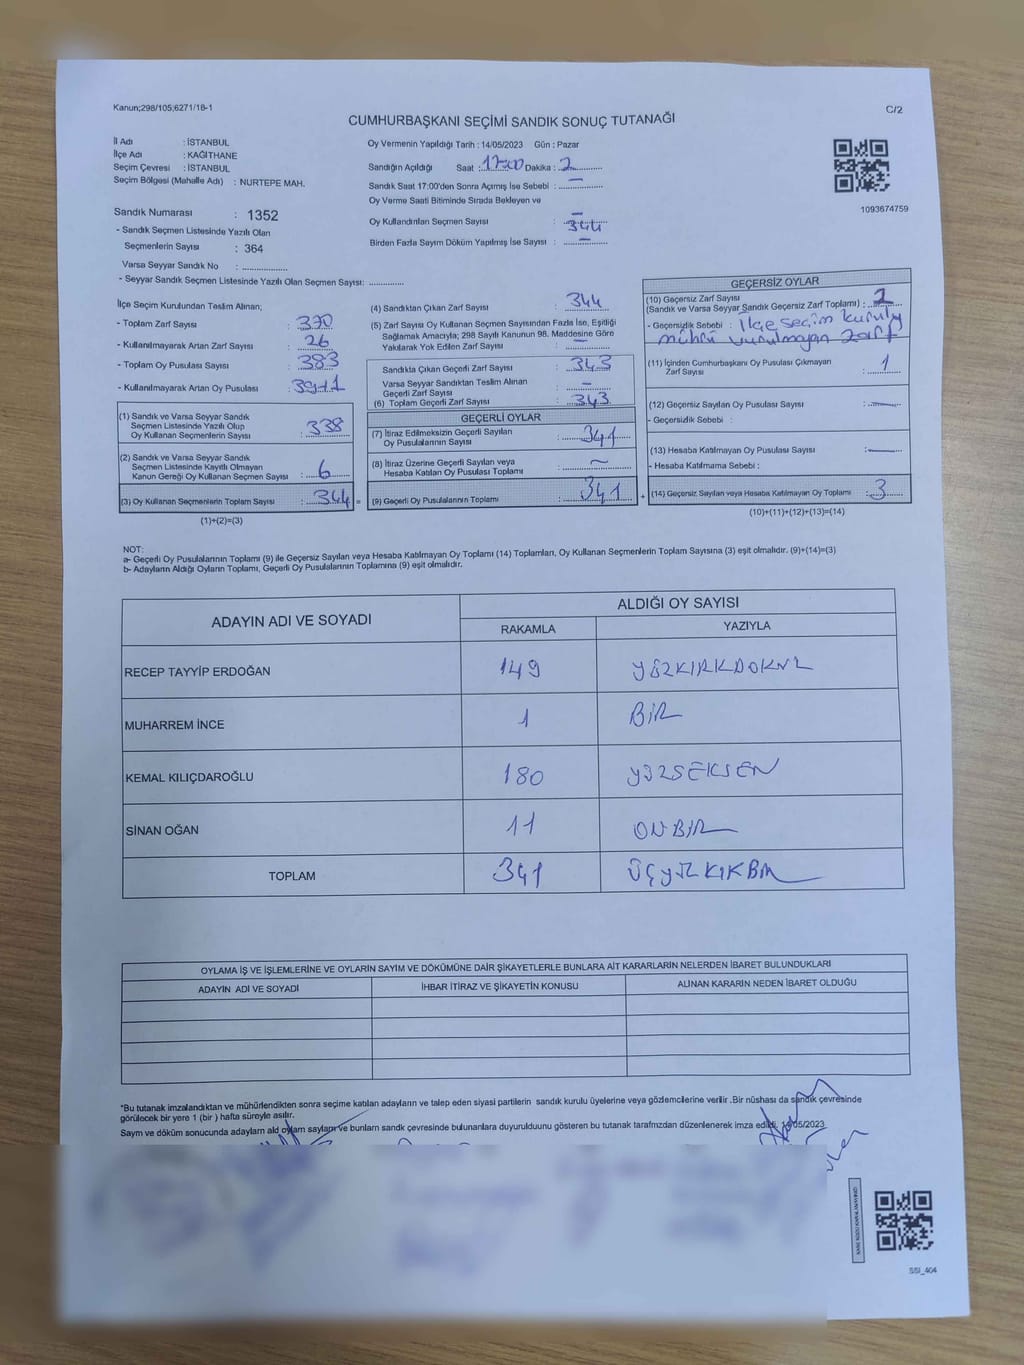 Kanun;298/105;6271/18-1
C/2
CUMHURBAŞKANI SEÇİMİ SANDIK SONUÇ TUTANAĞI
İl Adı : İSTANBUL
İlçe Adı : KAĞITHANE
Seçim Çevresi : İSTANBUL
Seçim Bölgesi (Mahalle Adı) : NURTEPE MAH.
Sandık Numarası : 1352
- Sandık Seçmen Listesinde Yazılı Olan
Seçmenlerin Sayısı : 364
Varsa Seyyar Sandık No : ................
- Seyyar Sandık Seçmen Listesinde Yazılı Olan Seçmen Sayısı: ............
Oy Vermenin Yapıldığı Tarih : 14/05/2023 Gün : Pazar
Sandığın Açıldığı Saat : 17:00 Dakika : 2
Sandık Saat 17:00'den Sonra Açımış İse Sebebi : –
Oy Verme Saati Bitiminde Sırada Bekleyen ve
Oy Kullandırılan Seçmen Sayısı : – 344
Birden Fazla Sayım Döküm Yapılmış İse Sayısı : –
1093674759
İlçe Seçim Kurulundan Teslim Alınan;
- Toplam Zarf Sayısı : 370
- Kullanılmayarak Artan Zarf Sayısı : 26
- Toplam Oy Pusulası Sayısı : 383
- Kullanılmayarak Artan Oy Pusulası : 39+1
(1) Sandık ve Varsa Seyyar Sandık
Seçmen Listesinde Yazılı Olup
Oy Kullanan Seçmenlerin Sayısı : 338
(2) Sandık ve Varsa Seyyar Sandık
Seçmen Listesinde Kayıtlı Olmayan
Kanun Gereği Oy Kullanan Seçmen Sayısı : 6
(3) Oy Kullanan Seçmenlerin Toplam Sayısı : 344 =
(1)+(2)=(3)
(4) Sandıktan Çıkan Zarf Sayısı : 344
(5) Zarf Sayısı Oy Kullanan Seçmen Sayısından Fazla İse, Eşitliği
Sağlamak Amacıyla; 298 Sayılı Kanunun 98. Maddesine Göre
Yakılarak Yok Edilen Zarf Sayısı : –
Sandıkta Çıkan Geçerli Zarf Sayısı : 343
Varsa Seyyar Sandıktan Teslim Alınan
Geçerli Zarf Sayısı : –
(6) Toplam Geçerli Zarf Sayısı : 343
GEÇERLİ OYLAR
(7) İtiraz Edilmeksizin Geçerli Sayılan
Oy Pusulalarının Sayısı : 341
(8) İtiraz Üzerine Geçerli Sayılan veya
Hesaba Katılan Oy Pusulası Toplamı : –
(9) Geçerli Oy Pusulalarının Toplamı : 341 +
GEÇERSİZ OYLAR
(10) Geçersiz Zarf Sayısı
(Sandık ve Varsa Seyyar Sandık Geçersiz Zarf Toplamı) : 2
- Geçersizlik Sebebi : İlçe seçim kurulu
mühürü vurulmayan zarf
(11) İçinden Cumhurbaşkanı Oy Pusulası Çıkmayan
Zarf Sayısı : 1
(12) Geçersiz Sayılan Oy Pusulası Sayısı : –
- Geçersizlik Sebebi :
(13) Hesaba Katılmayan Oy Pusulası Sayısı : –
- Hesaba Katılmama Sebebi :
(14) Geçersiz Sayılan veya Hesaba Katılmayan Oy Toplamı : 3
(10)+(11)+(12)+(13)=(14)
NOT:
a- Geçerli Oy Pusulalarının Toplamı (9) ile Geçersiz Sayılan veya Hesaba Katılmayan Oy Toplamı (14) Toplamları, Oy Kullanan Seçmenlerin Toplam Sayısına (3) eşit olmalıdır. (9)+(14)=(3)
b- Adayların Aldığı Oyların Toplamı, Geçerli Oy Pusulalarının Toplamına (9) eşit olmalıdır.
ADAYIN ADI VE SOYADI
ALDIĞI OY SAYISI
RAKAMLA YAZIYLA
RECEP TAYYİP ERDOĞAN 149 YÜZKIRKDOKUZ
MUHARREM İNCE 1 BİR
KEMAL KILIÇDAROĞLU 180 YÜZSEKSEN
SİNAN OĞAN 11 ONBİR
TOPLAM 341 ÜÇYÜZKIKBİR
OYLAMA İŞ VE İŞLEMLERİNE VE OYLARIN SAYIM VE DÖKÜMÜNE DAİR ŞİKAYETLERLE BUNLARA AİT KARARLARIN NELERDEN İBARET BULUNDUKLARI
ADAYIN ADI VE SOYADI İHBAR İTİRAZ VE ŞİKAYETİN KONUSU ALINAN KARARIN NEDEN İBARET OLDUĞU
*Bu tutanak imzalandıktan ve mühürlendikten sonra seçime katılan adayların ve talep eden siyasi partilerin sandık kurulu üyelerine veya gözlemcilerine verilir .Bir nüshası da sandık çevresinde
görülecek bir yere 1 (bir ) hafta süreyle asılır.
Sayım ve döküm sonucunda adayların ald oyların sayıları ve bunların sandık çevresinde bulunanlara duyurulduunu gösteren bu tutanak tarafımızdan düzenlenerek imza edildi. 14/05/2023
SSI_404